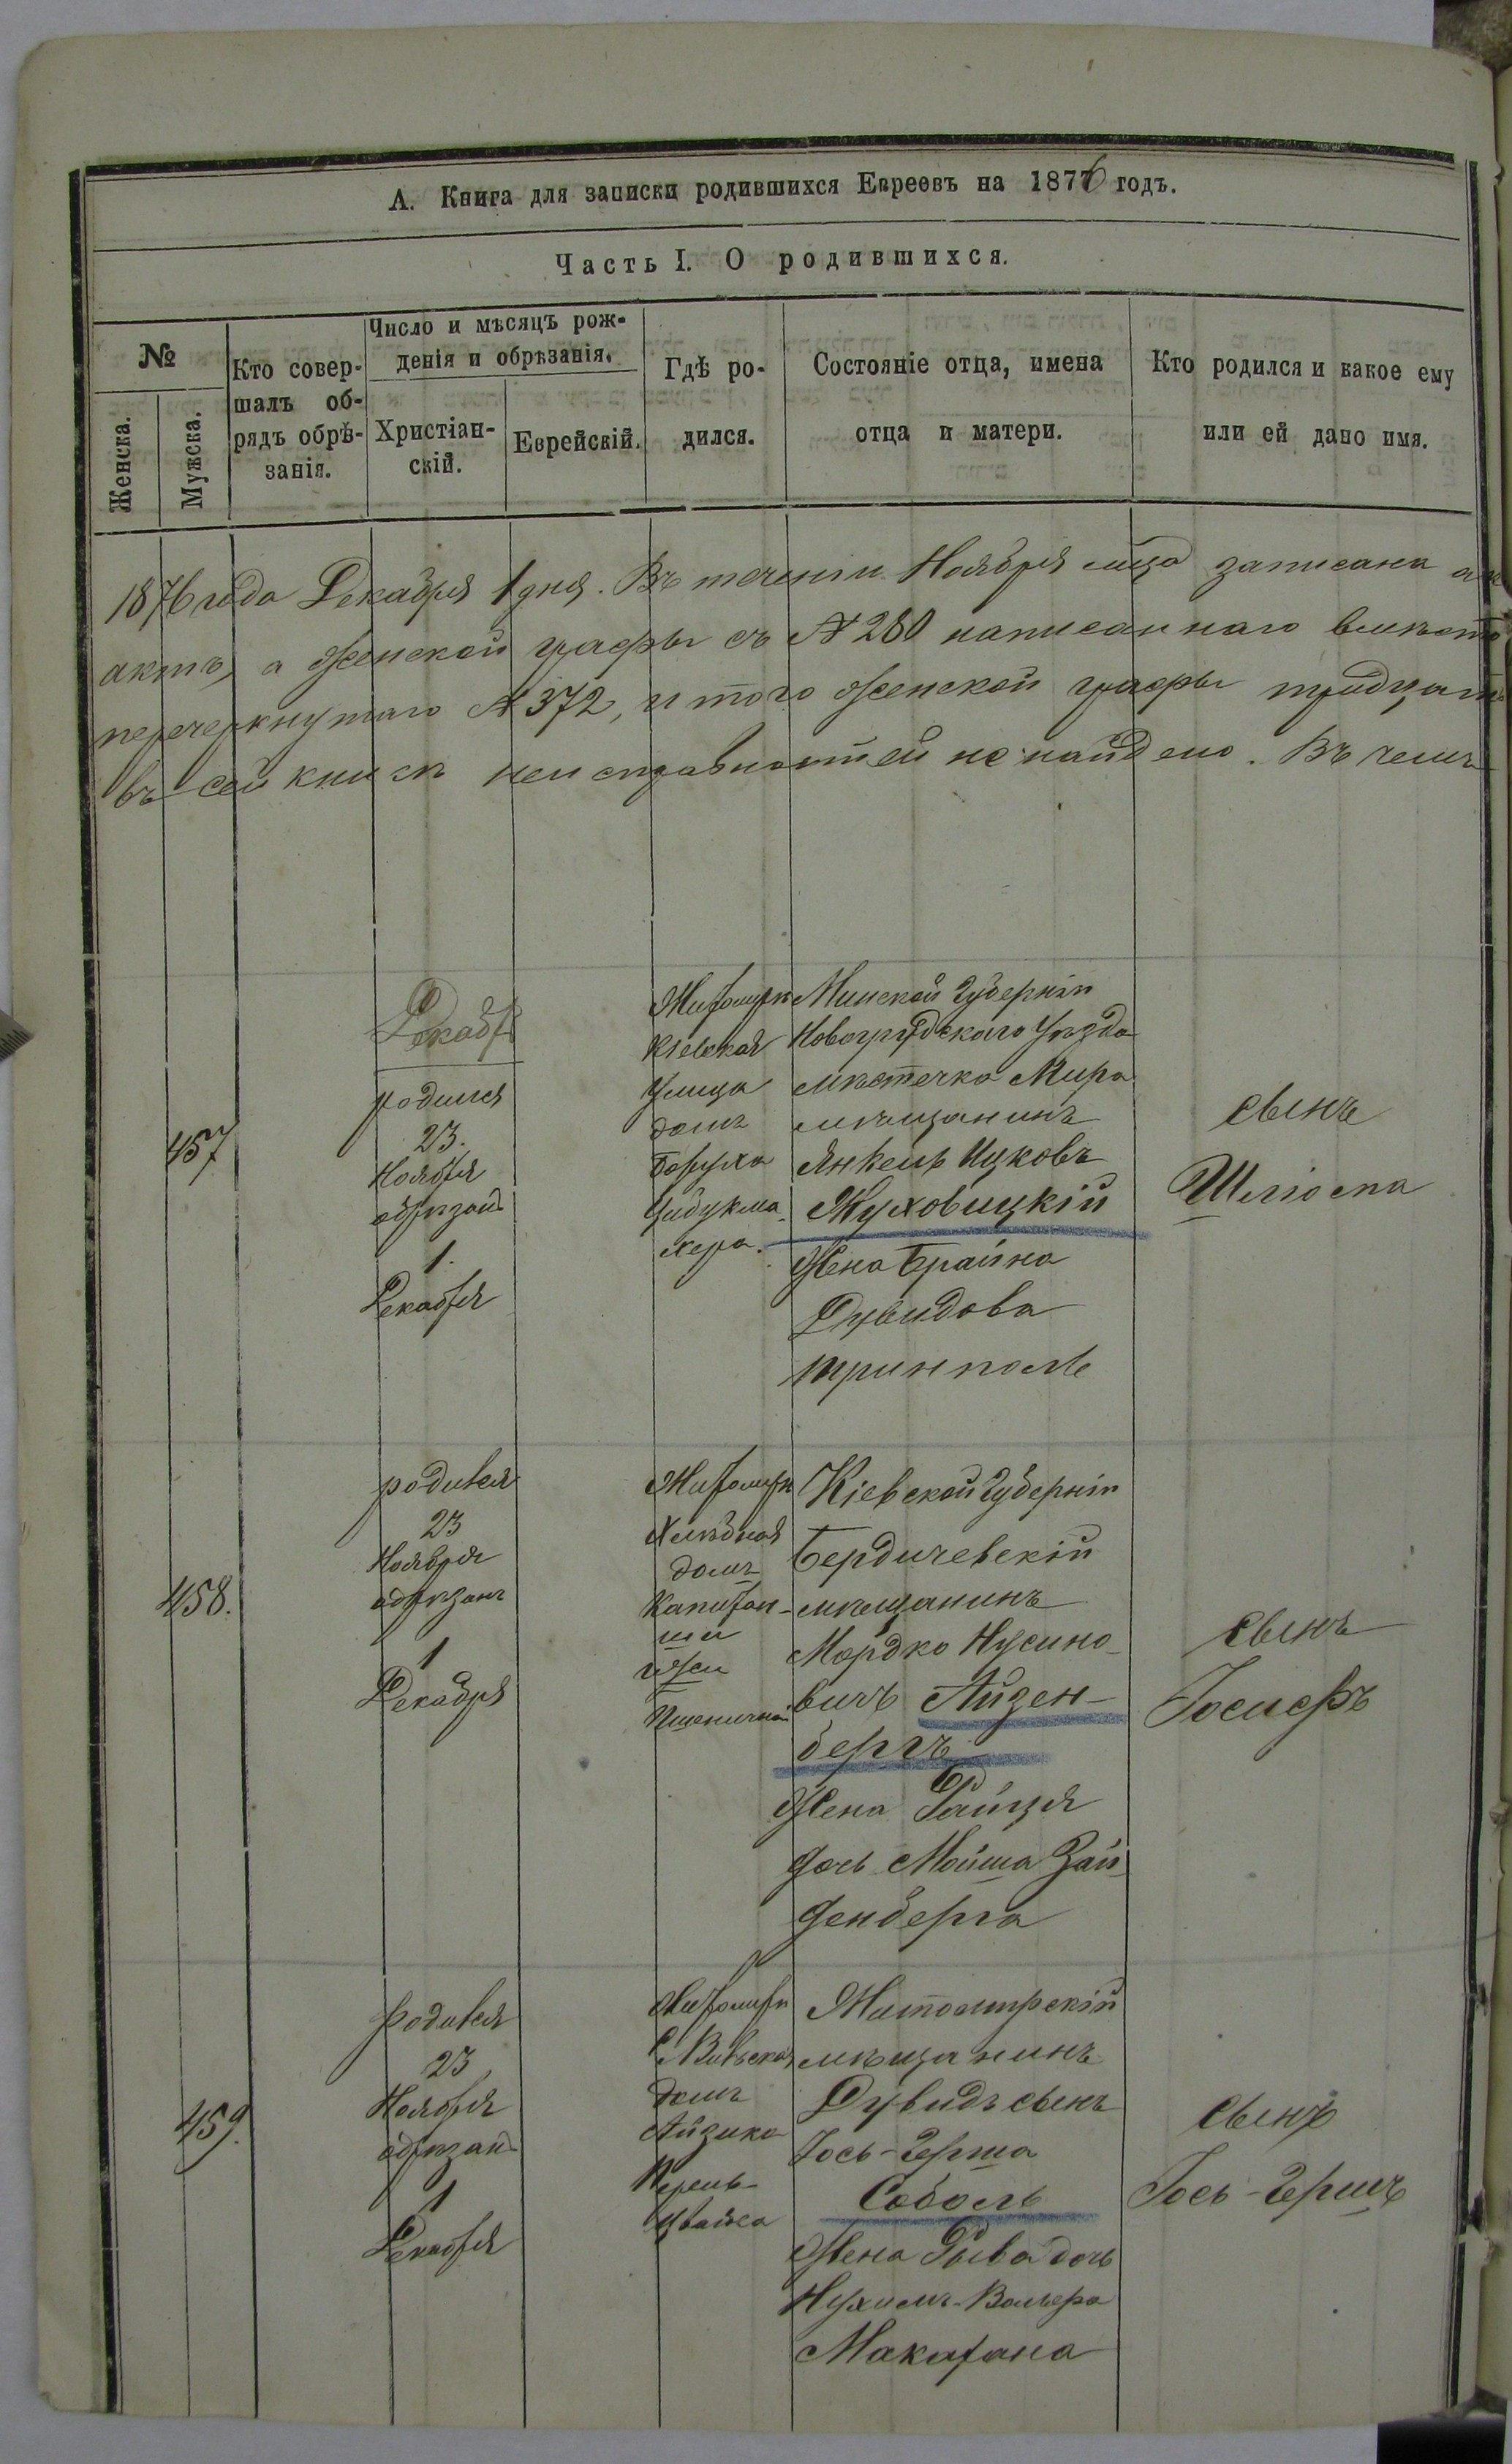 А. Книга для записки родившихся Евреевъ на 1876 годъ.
Часть I. О родившихся.
№
Женска.
Мужска.
Кто совер-
шалъ об-
рядъ обрѣ-
занія.
Число и мѣсяцъ рож-
денія и обрѣзанія.
Христіан-
скій.
Еврейскій.
Гдѣ ро-
дился.
Состояніе отца, имена
отца и матери.
Кто родился и какое ему
или ей дано имя.
1876 года Декабря 1 дня. Въ теченіи Ноября мца записана
актъ, а Женской графы съ № 280 написаннаго вмѣсто
перечеркнутаго № 372, итого Женской графы тридцать
въ сей книгѣ неисправностей не найдено. Въ чемъ
457
Декабрь
родился
23.
Ноября
обрѣзанъ
1.
Декабря
Житомирѣ
Кіевская
улица
домъ
Боруха
Цибукма-
хера.
Минской Губерніи
Новогрудскаго Уѣзда
мѣстечка Мира
мѣщанинъ
Янкель Ицковъ
Жуховицкій
Жена Брайна
Дувидова
сынъ
Шліома
458.
родился
23
Ноября
обрѣзанъ
1
Декабря
Житомирѣ
домъ
Капитан-
ши
Кіевской Губерніи
Бердичевскій
мѣщанинъ
Мордко Нусино-
вичъ Айзен-
бергъ
Жена Райзя
дочь Мойша Зай-
денберга
сынъ
Іосифъ
459.
родился
23
Ноября
обрѣзанъ
1
Декабря
Житомирѣ
домъ
Айзика
Перель-
цвайга
Житомирскій
мѣщанинъ
Дувидъ сынъ
Іось-Герша
Соболь
Жена Рыва дочь
Нухимъ-Вольфа
сынъ
Іось-Гершъ